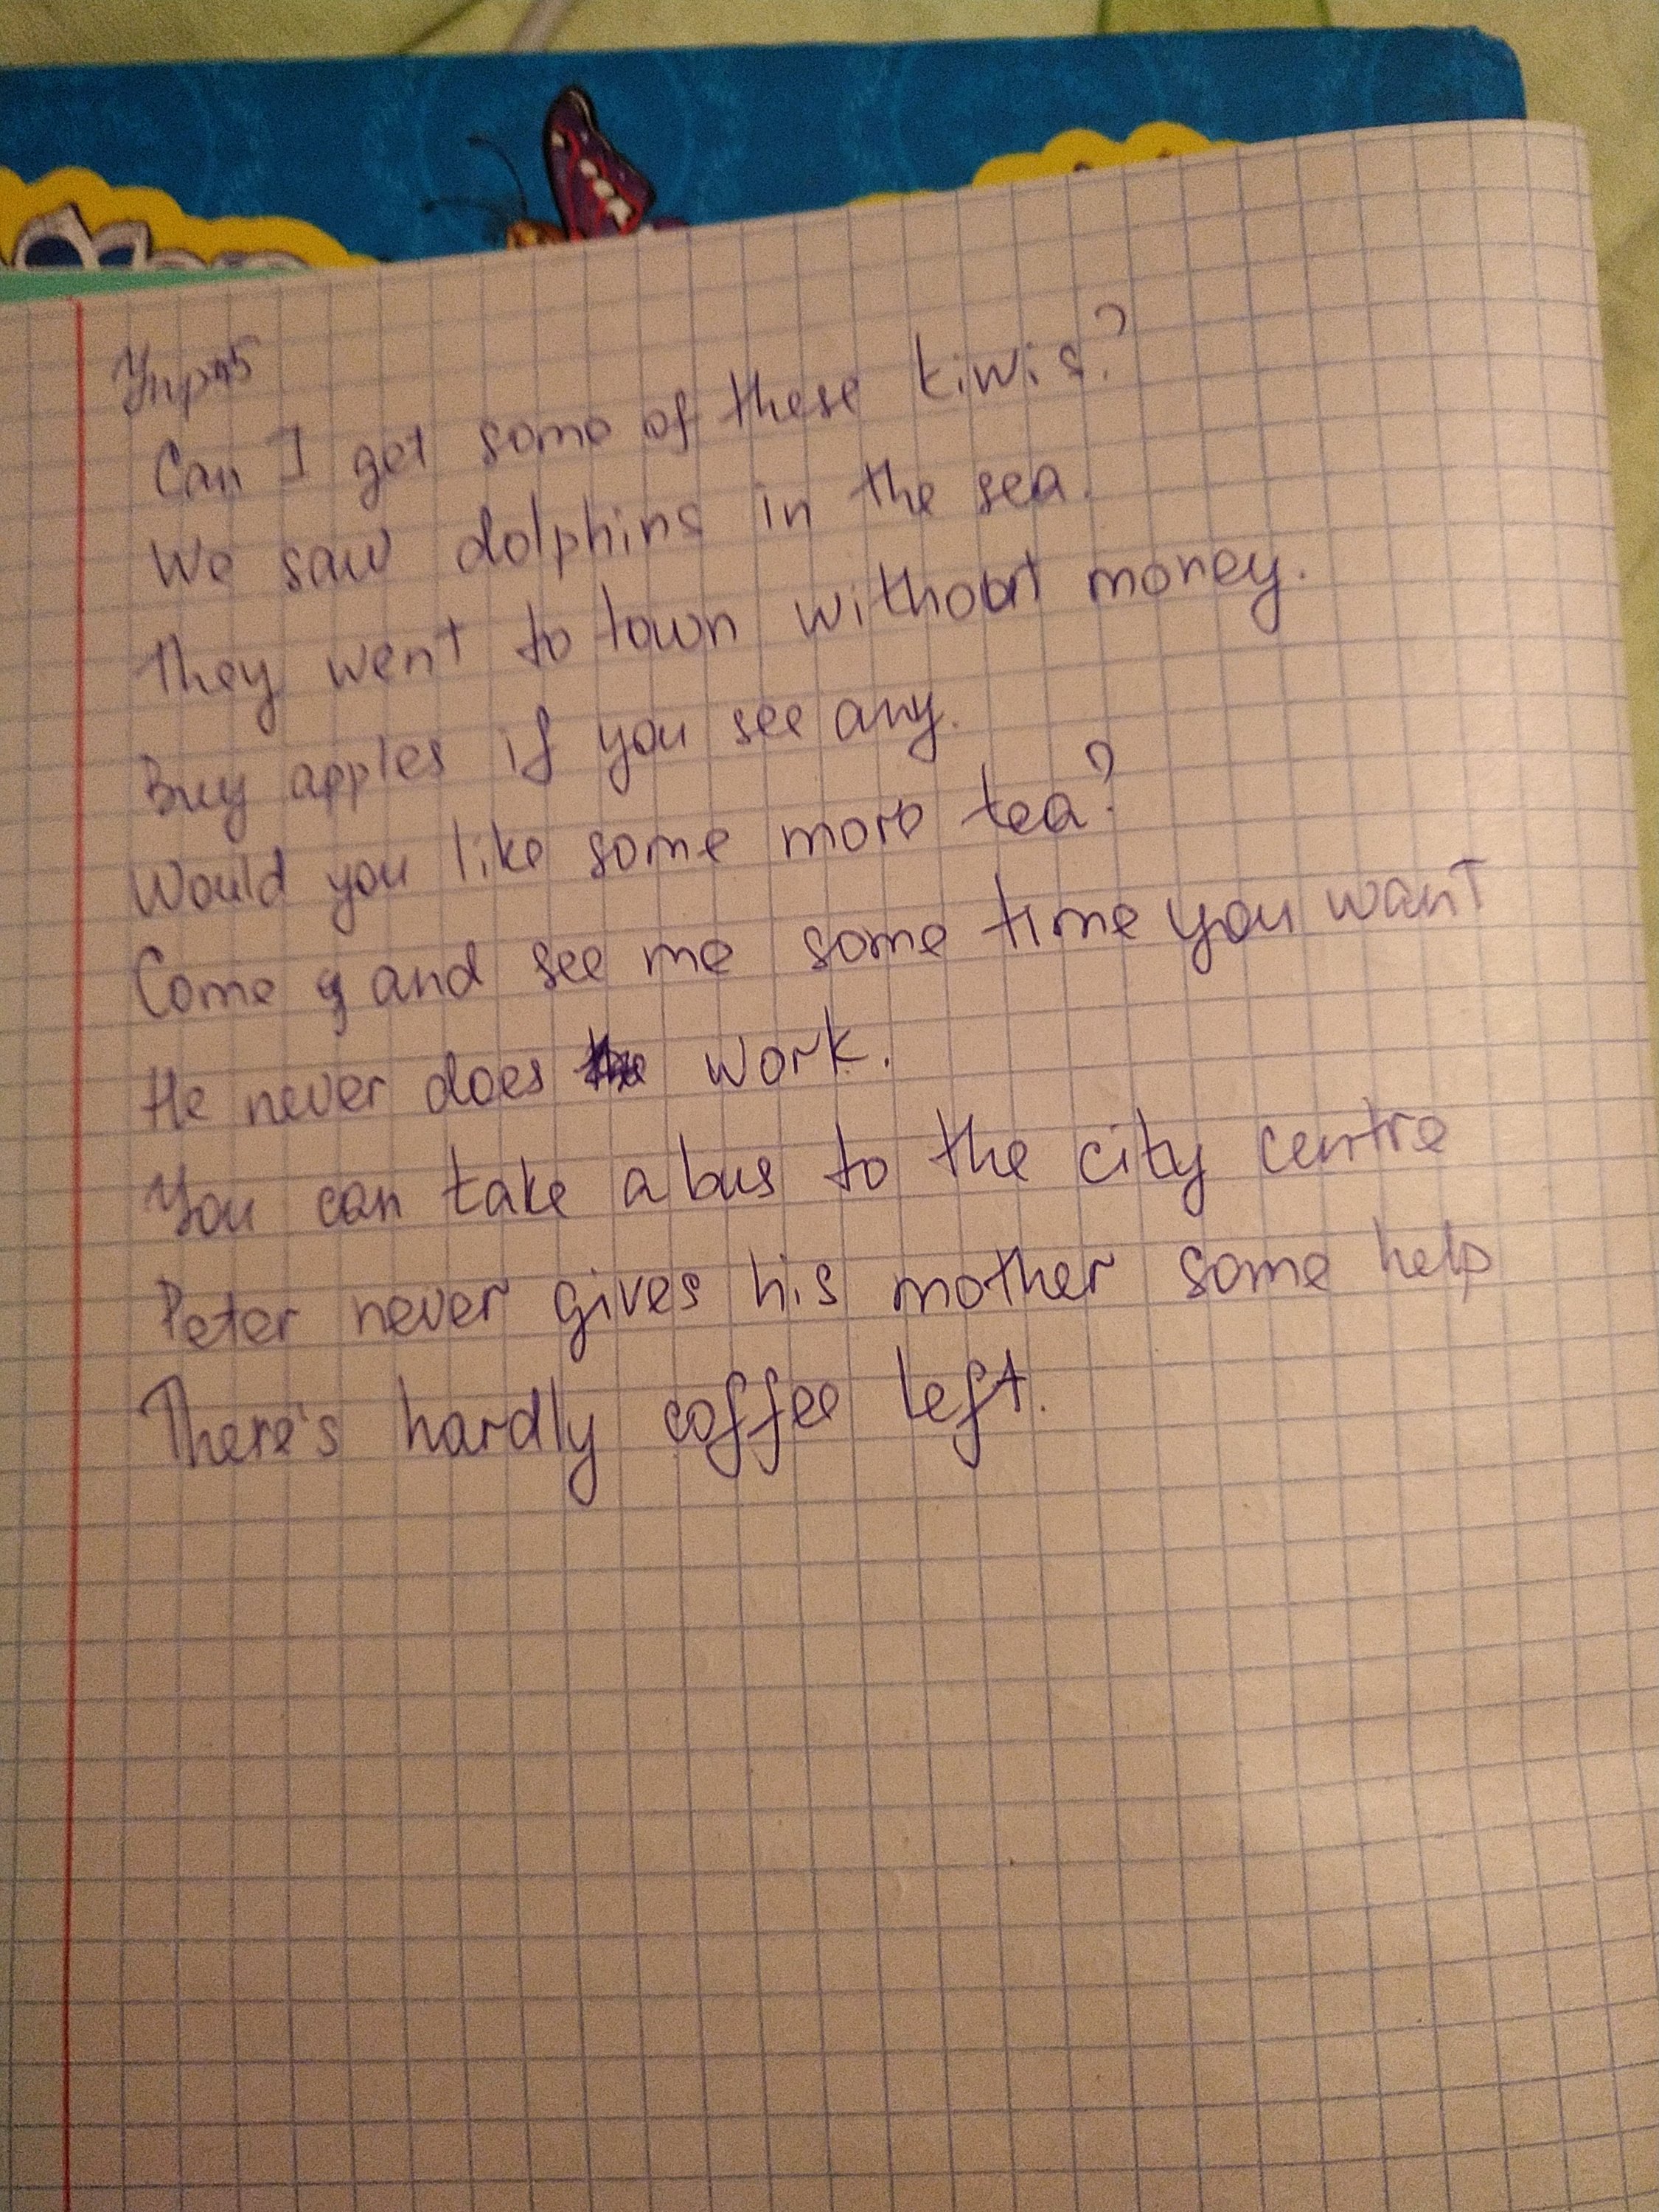 Упр5
Can I get some of these kiwis?
We saw dolphins in the sea.
They went to town without money.
Buy apples if you see any.
Would you like some more tea?
Come and see me some time you want
He never does work.
You can take a bus to the city centre
Peter never gives his mother some help
There's hardly coffee left.